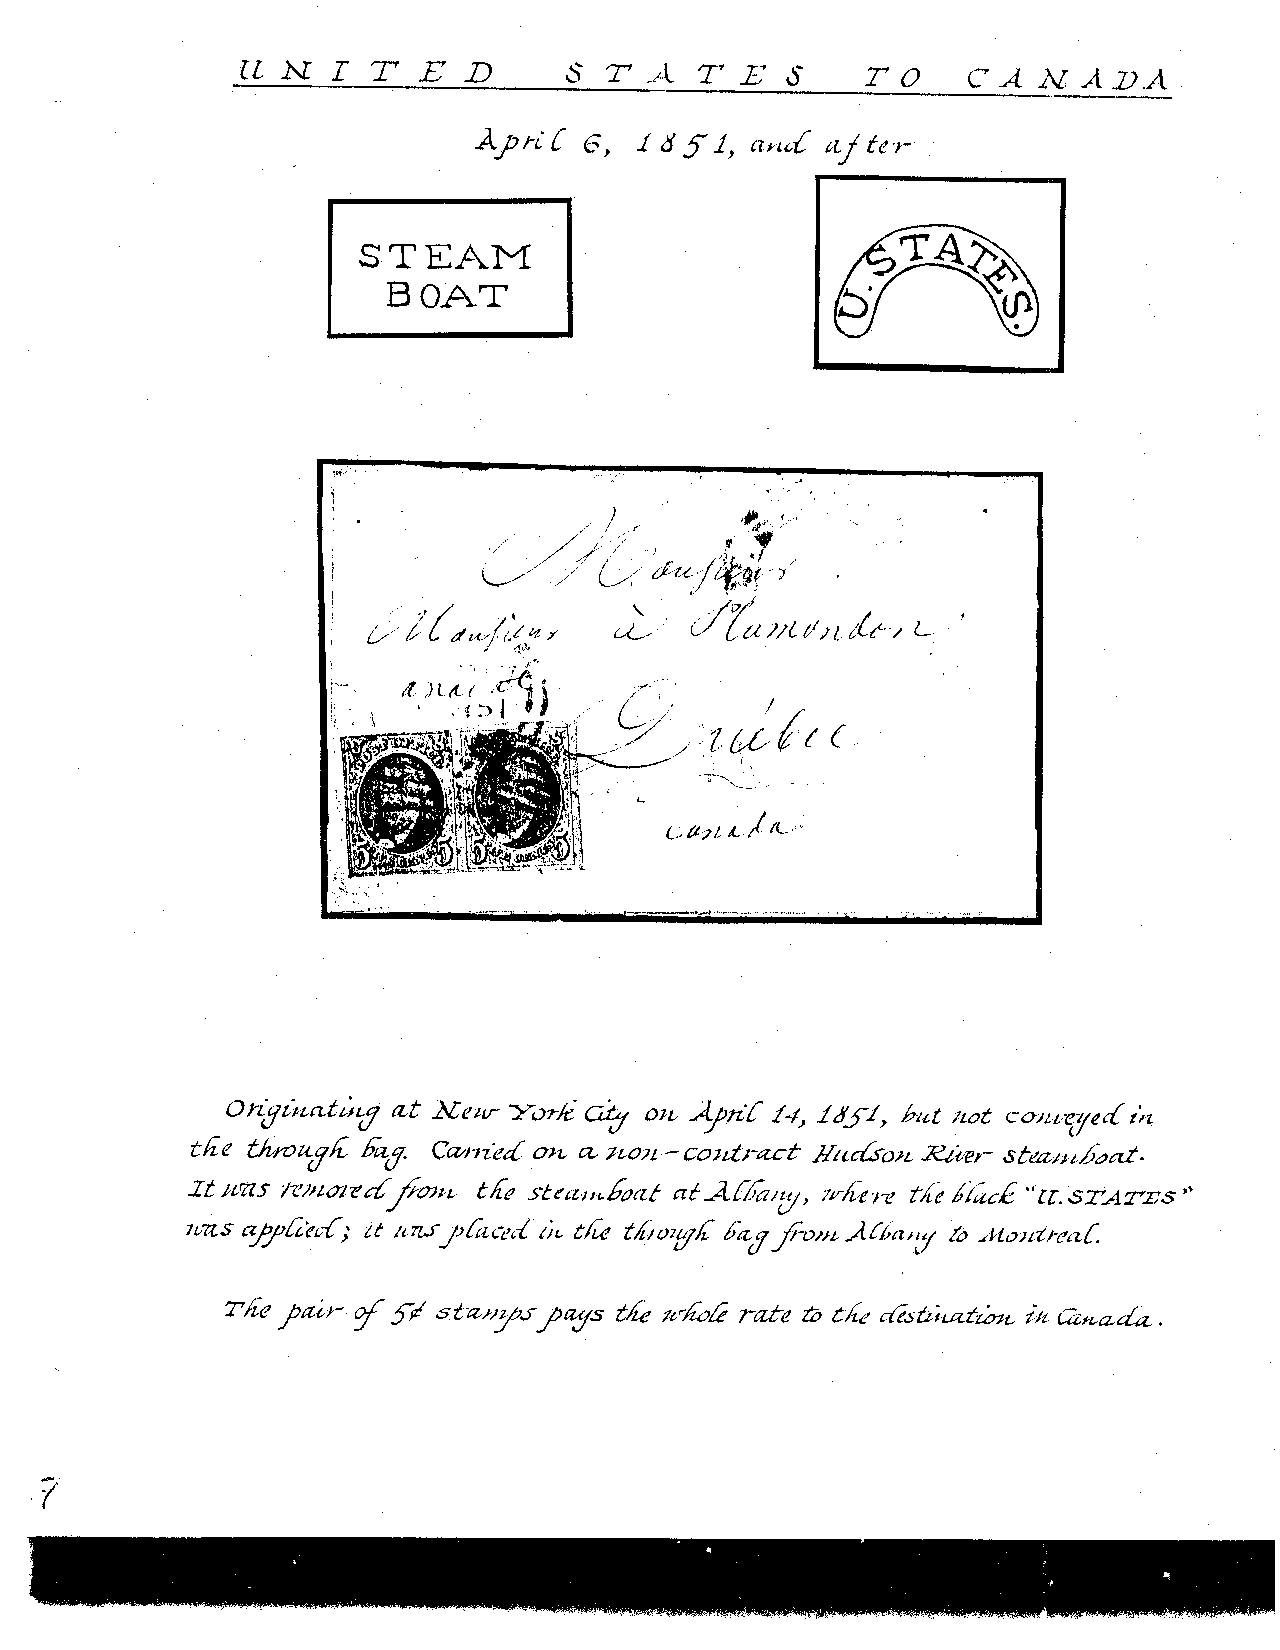 UNITED STATES TO CANADA
April 6, 1851, and after
STEAM
BOAT
U.STATES.
Monsieur
Monsieur à Plamondon
Québec
canada
5 5 5 5
Originating at New York City on April 14, 1851, but not conveyed in
the through bag. Carried on a non-contract Hudson River steamboat.
It was removed from the steamboat at Albany, where the black "U.STATES"
was applied; it was placed in the through bag from Albany to Montreal.
The pair of 5¢ stamps pays the whole rate to the destination in Canada.
7